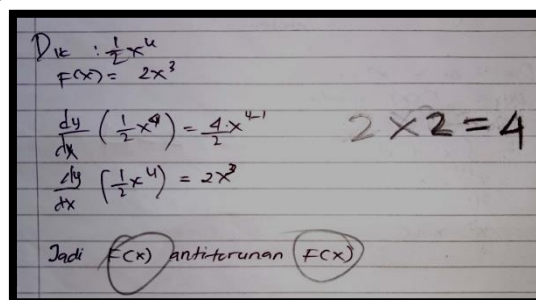 Dik : 1/2 x^4
F(x) = 2x^3
dy/dx (1/2 x^4) = 4/2 x^4-1
2 × 2 = 4
dy/dx (1/2 x^4) = 2x^3
Jadi F(x) antiturunan F(x)